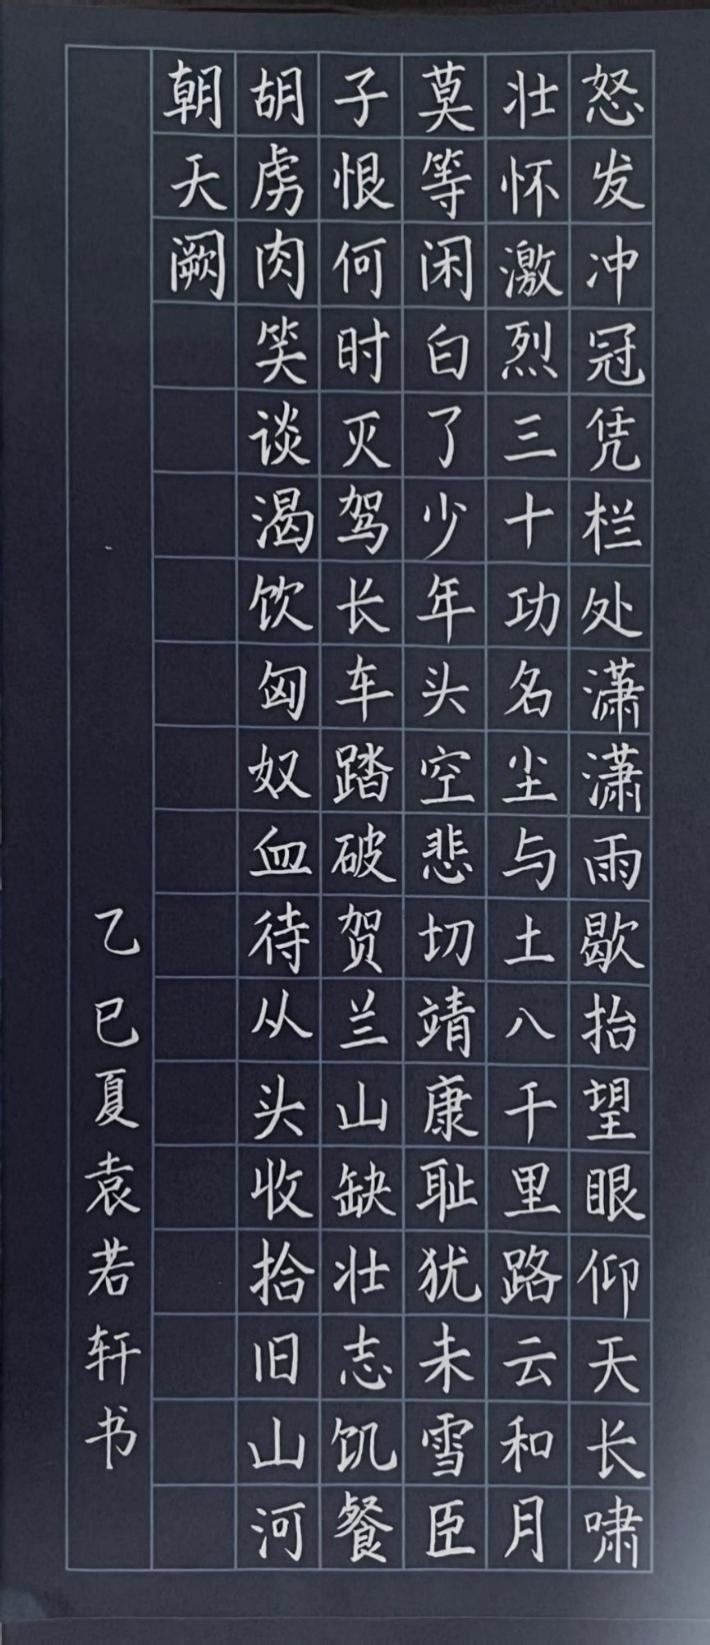 怒发冲冠凭栏处潇潇雨歇抬望眼仰天长啸
壮怀激烈三十功名尘与土八千里路云和月
莫等闲白了少年头空悲切靖康耻犹未雪臣
子恨何时灭驾长车踏破贺兰山缺壮志饥餐
胡虏肉笑谈渴饮匈奴血待从头收拾旧山河
朝天阙
乙巳夏袁若轩书